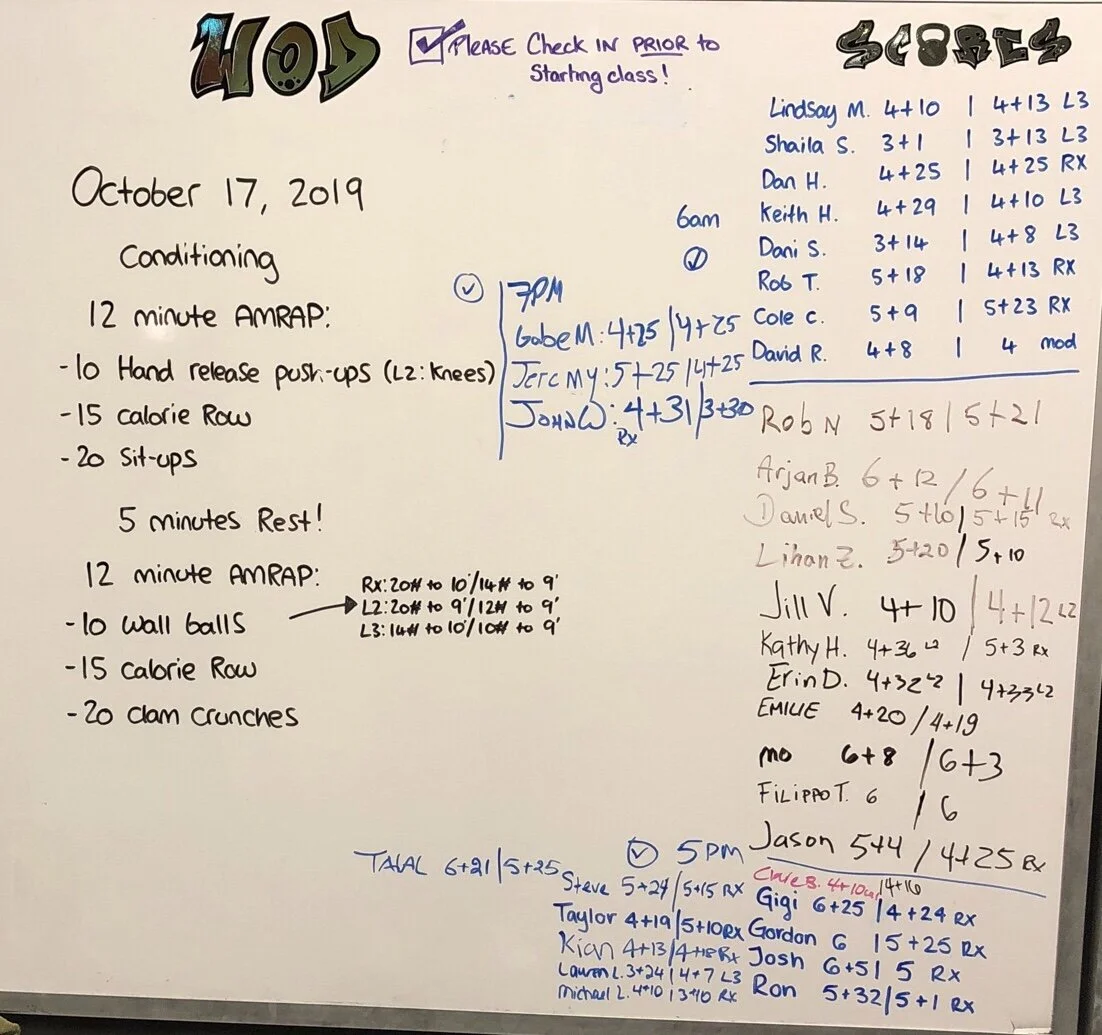 WOD
PLEASE Check IN PRIOR to
Starting class!
October 17, 2019
Conditioning
12 minute AMRAP:
-10 Hand release push-ups (L2: Knees)
-15 calorie Row
-20 Sit-ups
5 minutes Rest!
12 minute AMRAP:
-10 wall balls
Rx: 20# to 10'/14# to 9'
L2: 20# to 9'/12# to 9'
L3: 14# to 10'/10# to 9'
-15 calorie Row
-20 clam crunches
7PM
Gabe M: 4+25 / 4+25
Jeremy: 5+25 / 4+25
JOHN W: 4+31 / 3+30
Rx
6am
SCORES
Lindsay M. 4+10 | 4+13 L3
Shaila S. 3+1 | 3+13 L3
Dan H. 4+25 | 4+25 RX
Keith H. 4+29 | 4+10 L3
Dani S. 3+14 | 4+8 L3
Rob T. 5+18 | 4+13 RX
Cole C. 5+9 | 5+23 RX
David R. 4+8 | 4 mod
Rob N 5+18 | 5+21
Arjan B. 6+12 / 6+11
Daniel S. 5+10 | 5+15 Rx
Lihan Z. 5+20 / 5+10
Jill V. 4+10 | 4+12 L2
Kathy H. 4+36 L2 / 5+3 Rx
Erin D. 4+32 L2 | 4+33 L2
EMILIE 4+20 / 4+19
mo 6+8 / 6+3
FILIPPO T. 6 / 6
Jason 5+4 / 4+25 Rx
5PM
TALAL 6+21 | 5+25
Steve 5+24 / 5+15 RX
Taylor 4+19 | 5+10 RX
Kian 4+13 / 4+18 Rx
Lauren L. 3+24 | 4+7 L3
Michael L. 4+10 | 3+10 RX
B. 4+10 | 4+16
Gigi 6+25 | 4+24 RX
Gordon 6 | 5+25 RX
Josh 6+5 | 5 RX
Ron 5+32 | 5+1 RX